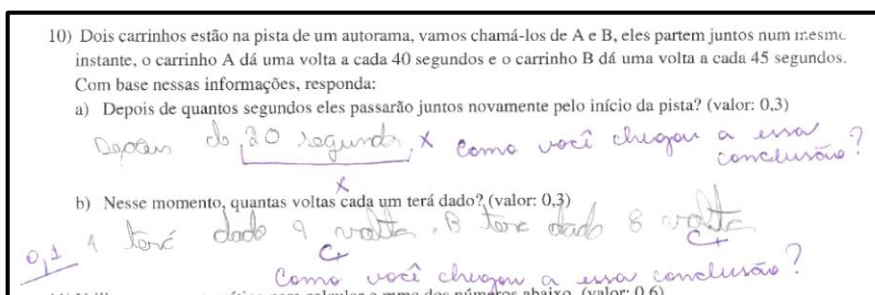 10) Dois carrinhos estão na pista de um autorama, vamos chamá-los de A e B, eles partem juntos num mesmo
instante, o carrinho A dá uma volta a cada 40 segundos e o carrinho B dá uma volta a cada 45 segundos.
Com base nessas informações, responda:
a) Depois de quantos segundos eles passarão juntos novamente pelo início da pista? (valor: 0,3)
Depois do 20 segundos, x Como você chegou a essa
conclusão?
x
b) Nesse momento, quantas voltas cada um terá dado? (valor: 0,3)
0,1 A terá dado 9 volta, B terá dado 8 volta
C+ C+
Como você chegou a essa conclusão?
calcular o mmc dos números abaixo. (valor: 0,6)